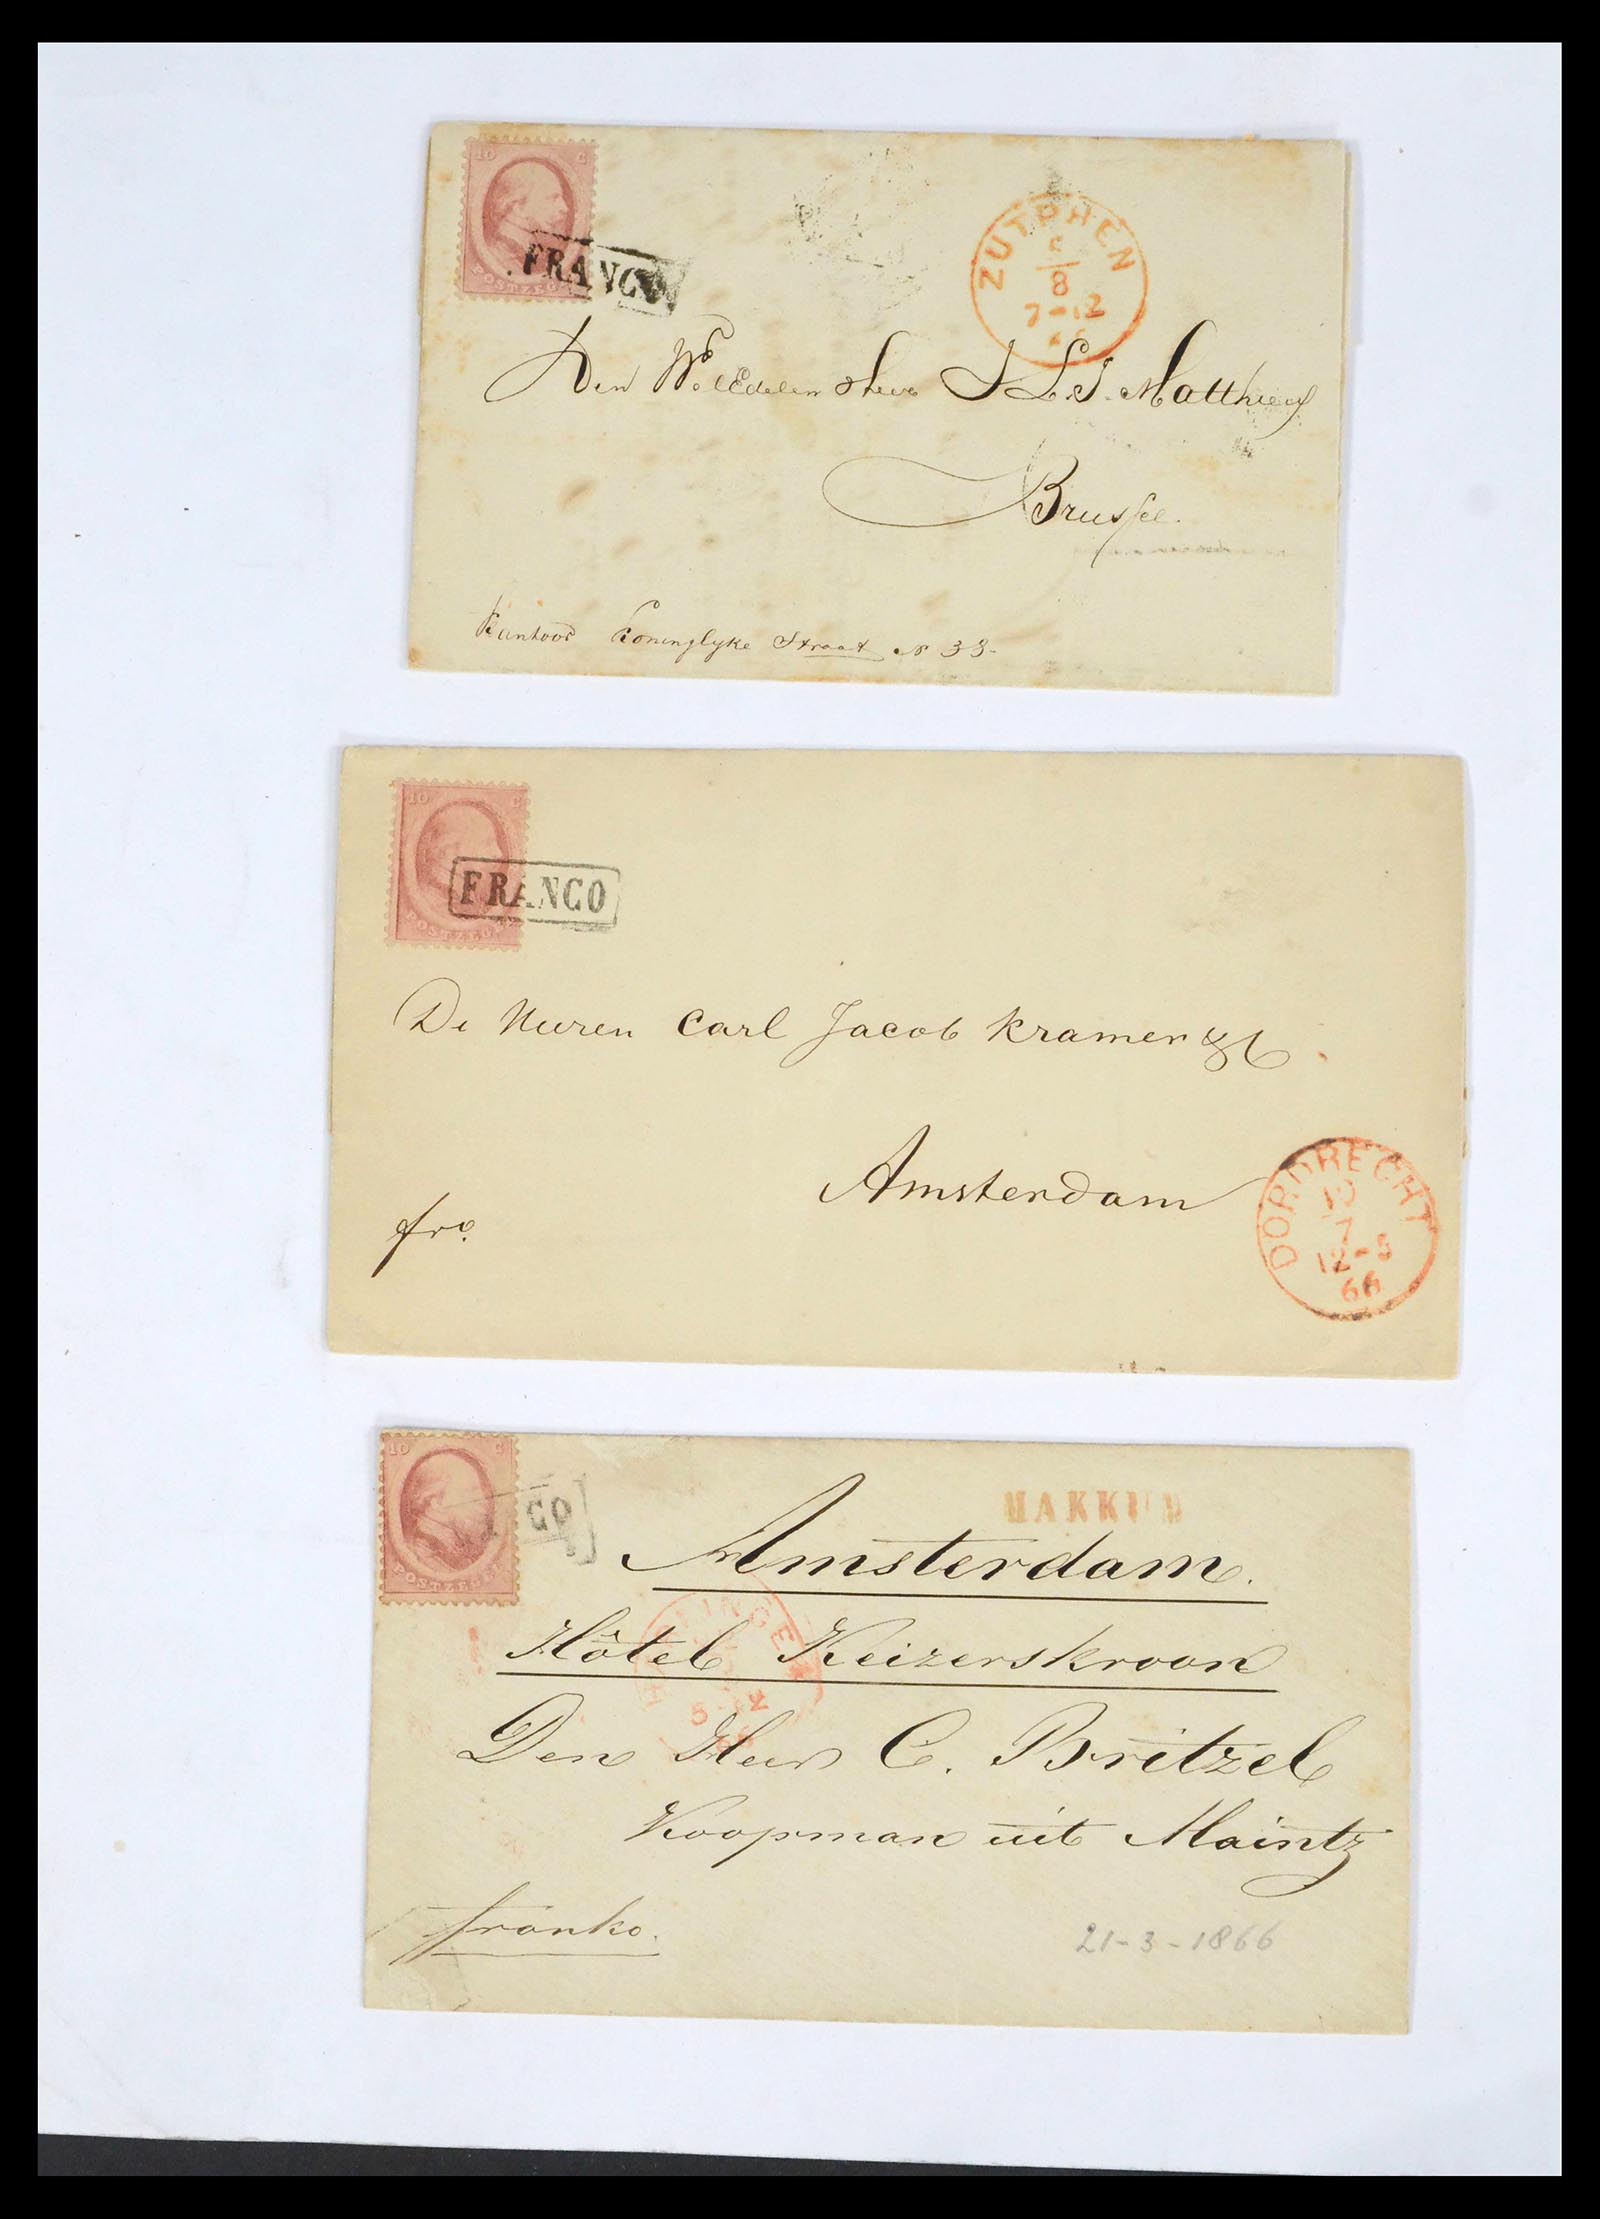 10 C
POSTZEGEL
FRANCO
ZUTPHEN
8
7-12
Den WelEdelen Heer J L.J. Matthieu
Brussel.
Kantoor Koninglyke Straat N 33-
10 C
POSTZEGEL
FRANCO
De Heeren Carl Jacob Kramer & C
Amsterdam
fro.
DORDRECHT
10
7
12-5
66
10 C
POSTZEGEL
CO
MAKKUM
Amsterdam.
Hôtel Keizerskroon
HARLINGEN
8-12
Den Heer C. Britzel
Koopman uit Maintz
franko.
21-3-1866